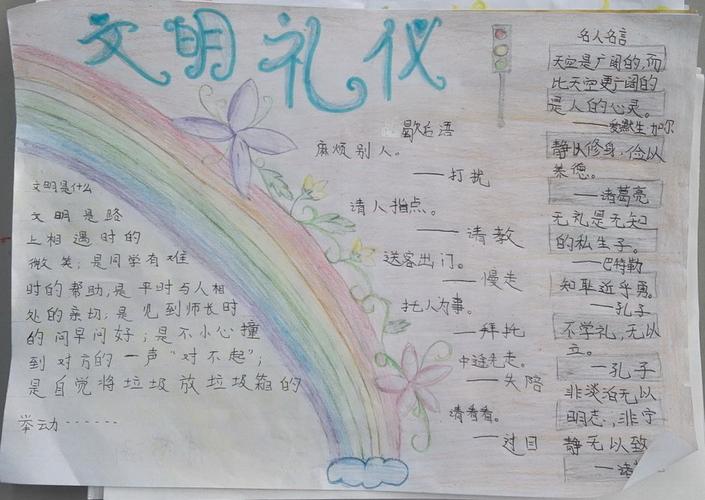 文明礼仪
文明是什么
文明是路
上相遇时的
微笑;是同学有难
时的帮助;是平时与人相
处的亲切;是见到师长时
的问早问好;是不小心撞
到对方的一声“对不起”;
是自觉将垃圾放垃圾箱的
举动······
歇后语
麻烦别人。
——打扰
请人指点。
——请教
送客出门。
——慢走
托人为事。
——拜托
中途先走。
——失陪
请看看。
——过目
名人名言
天空是广阔的,而
比天空更广阔的
是人的心灵。
静以修身,俭以
养德。
——诸葛亮
无礼是无知
的私生子。
——巴特勒
知耻近乎勇。
——孔子
不学礼,无以
立。
——孔子
非淡泊无以
明志,非宁
静无以致